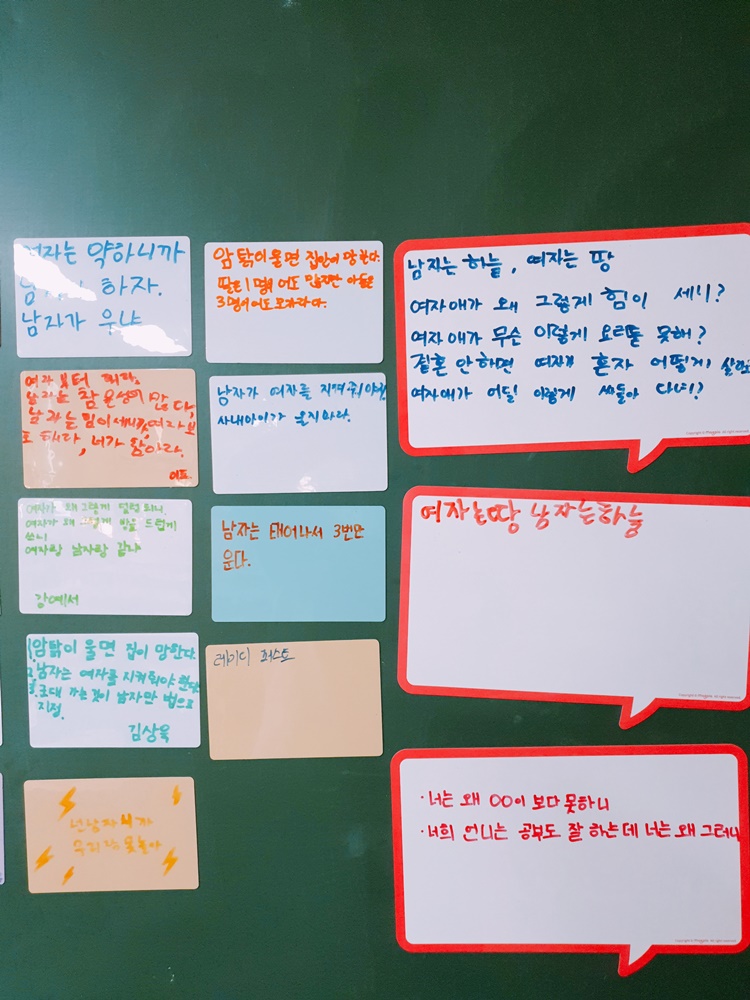 여자는 약하니까
하자.
남자가 우냐
암탉이 울면 집안이 망한다.
딸은 1명 있어도 아들은
3명 있어도 모자라다.
남자는 하늘, 여자는 땅
여자애가 왜 그렇게 힘이 세니?
여자애가 무슨 이렇게 요리를 못해?
결혼 안하면 여자가 혼자 어떻게 살려고
여자애가 어딜 이렇게 싸돌아 다녀!?
여자부터
남자는 힘이 세니까, 여자보
다, 너가 참아라.
남자가 여자를 지켜줘야한
사내아이가 울지마라.
여자가 왜 그렇게 덜렁되니.
여자가 왜 이렇게 방을 드럽게
쓰니
여자랑 남자랑 같냐
강예서
남자는 태어나서 3번만
운다.
여자는땅 남자는하늘
1. 암탉이 울면 집이 망한다.
2. 남자는 여자를 지켜줘야 한다
3. 군대 가는것이 남자만 법으로
지정.
김상욱
레이디 퍼스트
넌 남자니까
· 너는 왜 OO이 보다 못하니
· 너희 언니는 공부도 잘 하는데 너는 왜 그러니